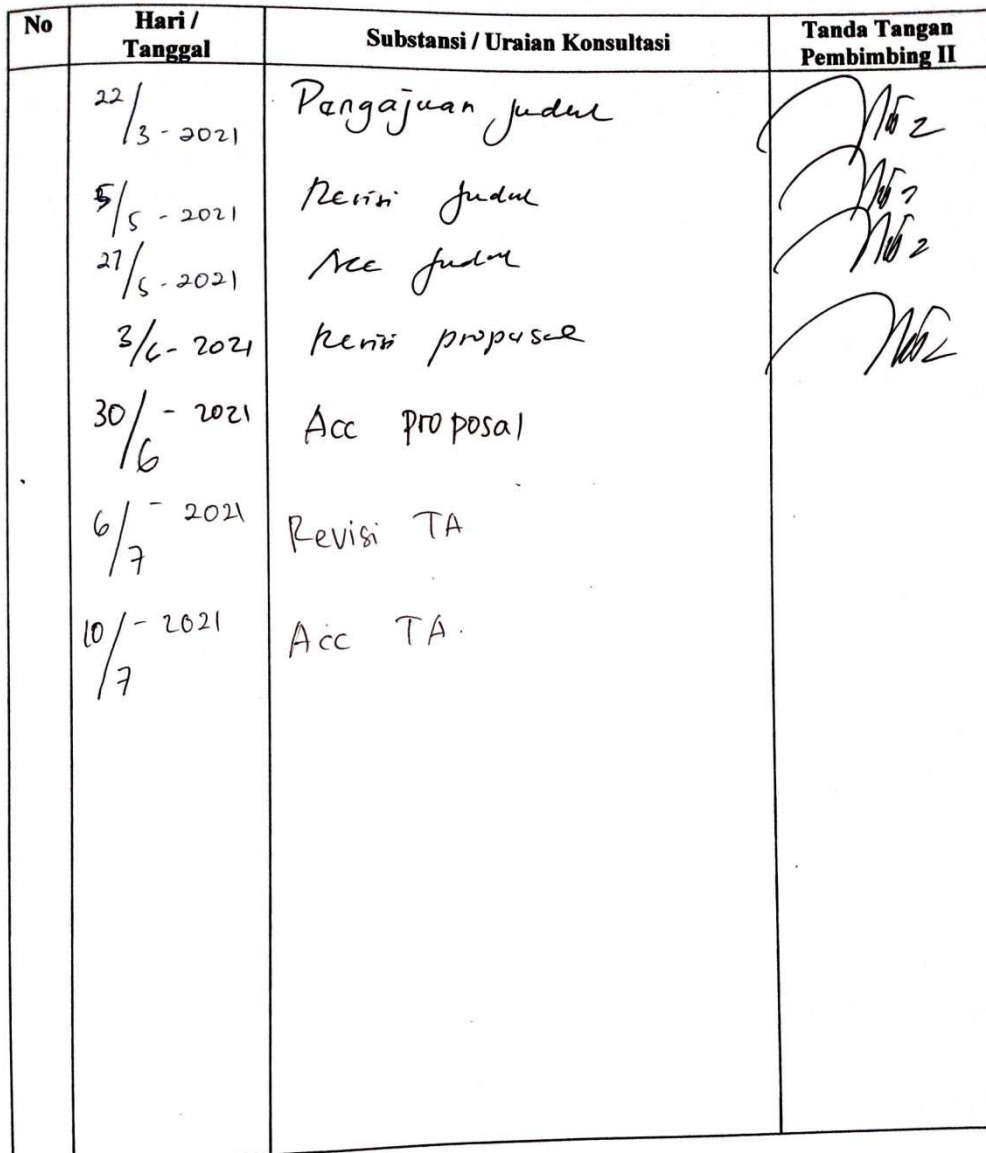 No Hari / Tanggal Substansi / Uraian Konsultasi Tanda Tangan Pembimbing II
22/3 - 2021 Pengajuan Judul
5/5 - 2021 Revisi Judul
27/5 - 2021 Acc Judul
3/6 - 2021 Revisi proposal
30/6 - 2021 Acc proposal
6/7 - 2021 Revisi TA
10/7 - 2021 Acc TA.